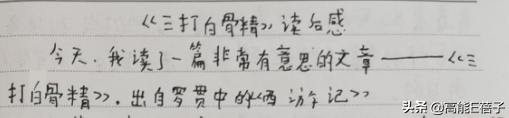 《三打白骨精》读后感
今天，我读了一篇非常有意思的文章——《三
打白骨精》，出自罗贯中的《西游记》
头条@高能E蓓子